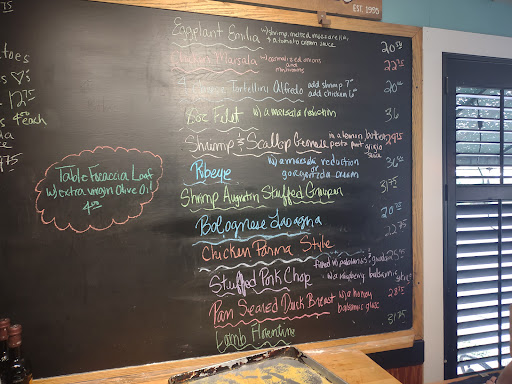 EST. 1995
75
toes
12 75
4 50 each
75
Table Focaccia Loaf
w/ extra virgin Olive Oil
4 50
Eggplant Emilia w/ shrimp, melted mozzarella,
& a tomato cream sauce
Chicken Marsala w/ caramelized onions
and
mushrooms
22
Tortellini Alfredo add shrimp 7
add chicken 6
20
8oz Filet w/ a marsala reduction 36
Shrimp & Scallop Gemelli in a lemon butter
pesto pinot grigio
sauce
Ribeye w/ a marsala reduction
or
gorgonzola cream
36
Shrimp Augustin Stuffed Grouper 31 75
Bolognese Lasagna 20 75
Chicken Parma Style 22 75
Stuffed Pork Chop
w/ a raspberry balsamic
Pan Seared Duck Breast w/ a honey
balsamic glaze
28 75
Lamb Florentine 31 75